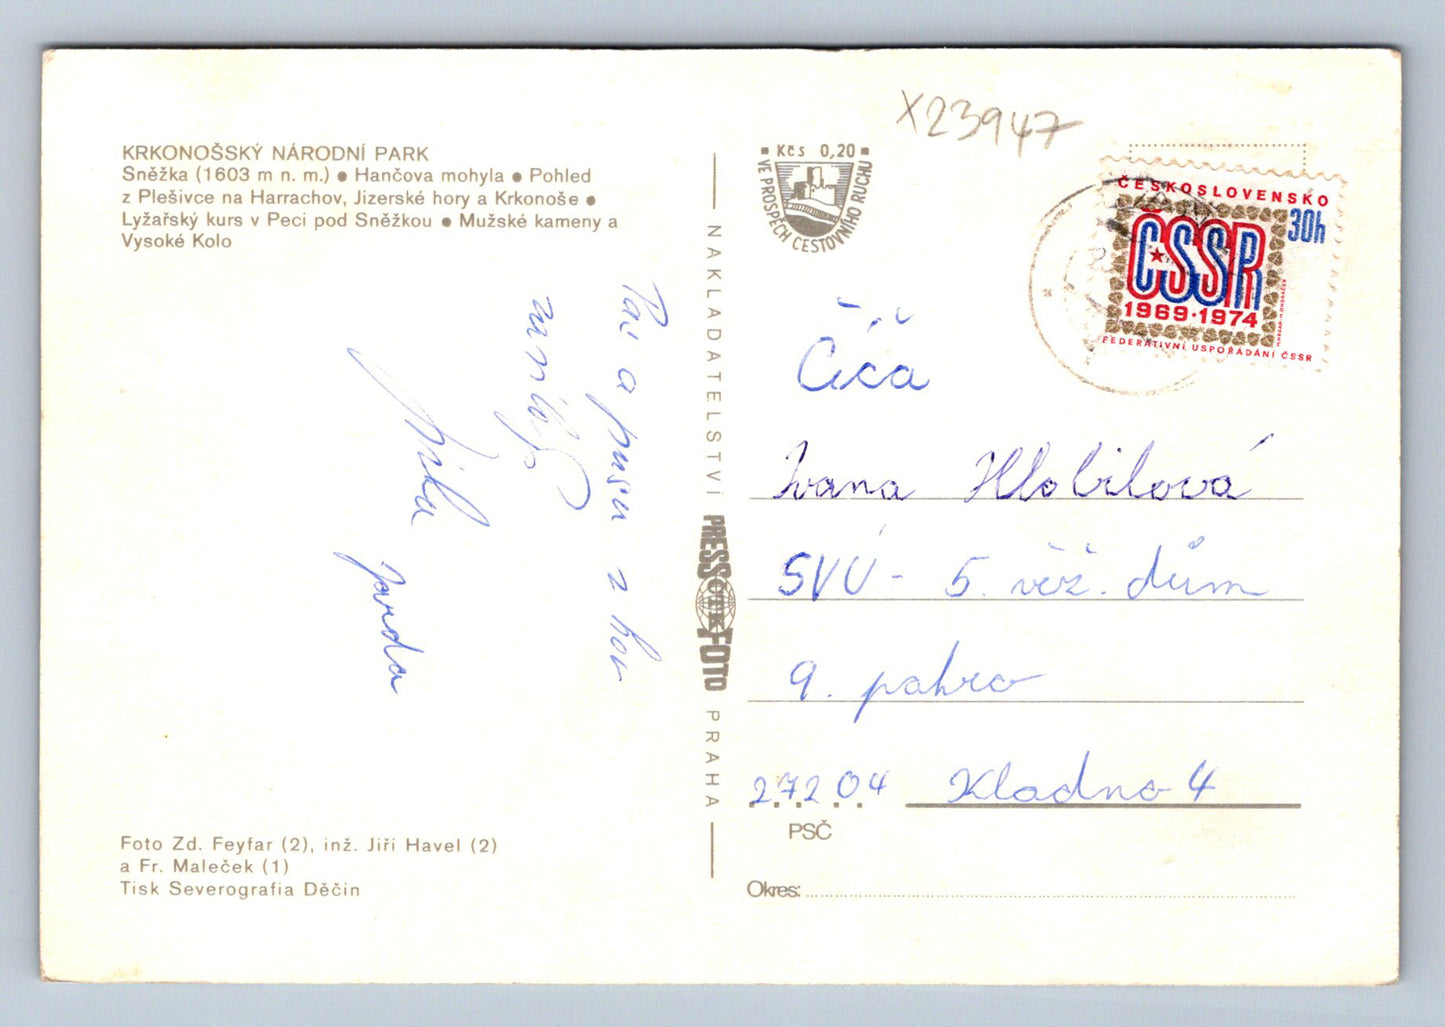 KRKONOŠSKÝ NÁRODNÍ PARK
Sněžka (1603 m n. m.) ● Hančova mohyla ● Pohled
z Plešivce na Harrachov, Jizerské hory a Krkonoše ●
Lyžařský kurs v Peci pod Sněžkou ● Mužské kameny a
Vysoké Kolo
Pac a pusu z hor
Jirka
Jarda
Foto Zd. Feyfar (2), inž. Jiří Havel (2)
a Fr. Maleček (1)
Tisk Severografia Děčín
NAKLADATELSTVÍ PRESSFOTO PRAHA
Kčs 0,20
VE PROSPĚCH CESTOVNÍHO RUCHU
X23947
ČESKOSLOVENSKO
30h
ČSSR
1969·1974
FEDERATIVNÍ USPOŘÁDÁNÍ ČSSR
Číča
Ivana Hlobilová
SVÚ - 5. věž. dům
9. patro
272 04 Kladno 4
PSČ
Okres: